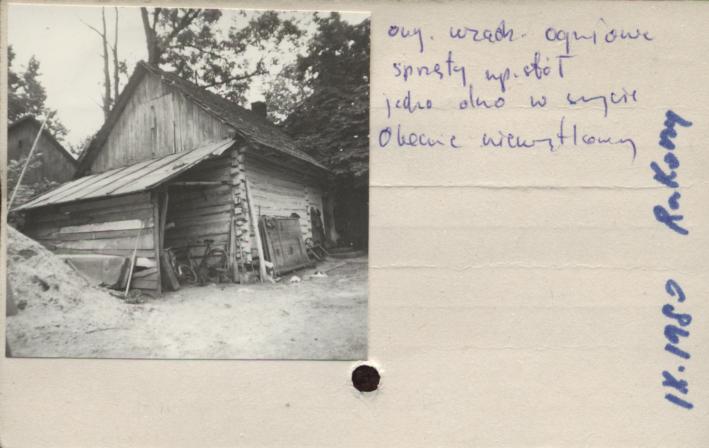 oryg. urządz. ogniowe
sprzęty np. stół
jedno okno w szczycie
Obecnie nieużytkowany
Rakowy
IX. 1980